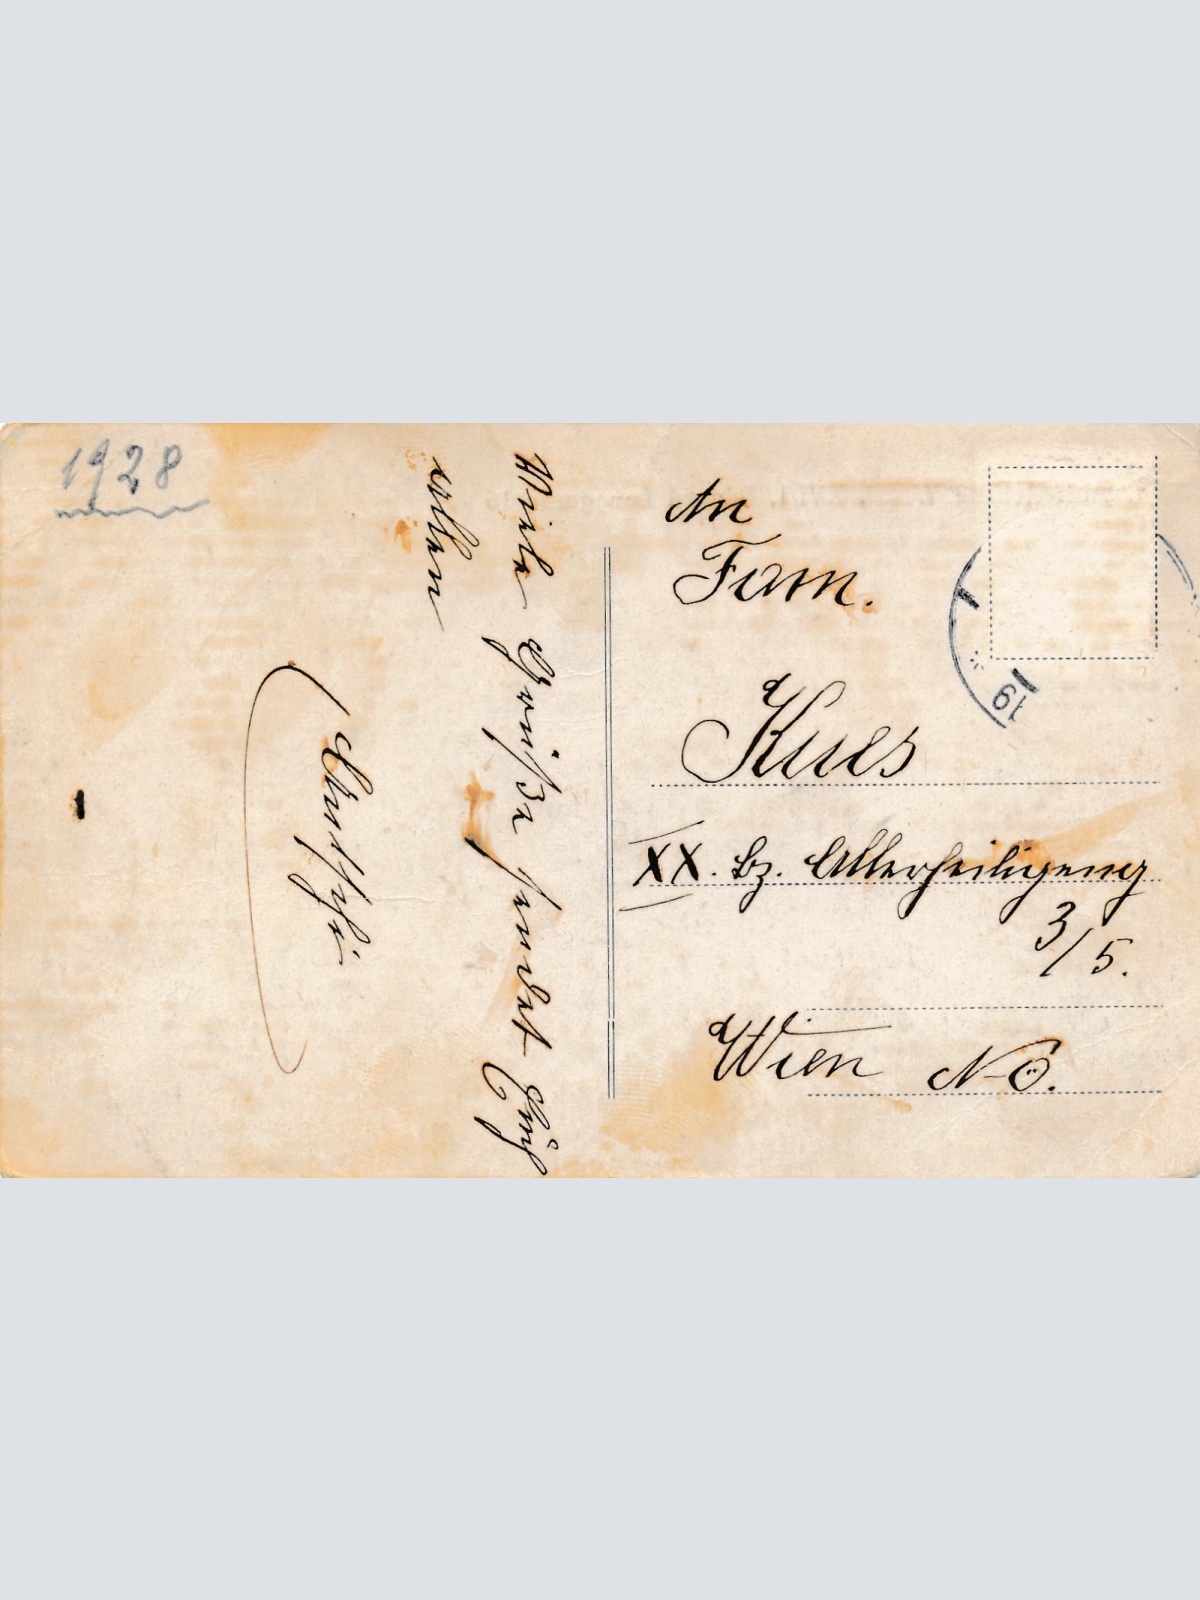 1928
Viele Grüße sendet Euch
allen
An
Fam.
Kues
XX. Bz. Allerheiligeng
3/5.
Wien NÖ.
19